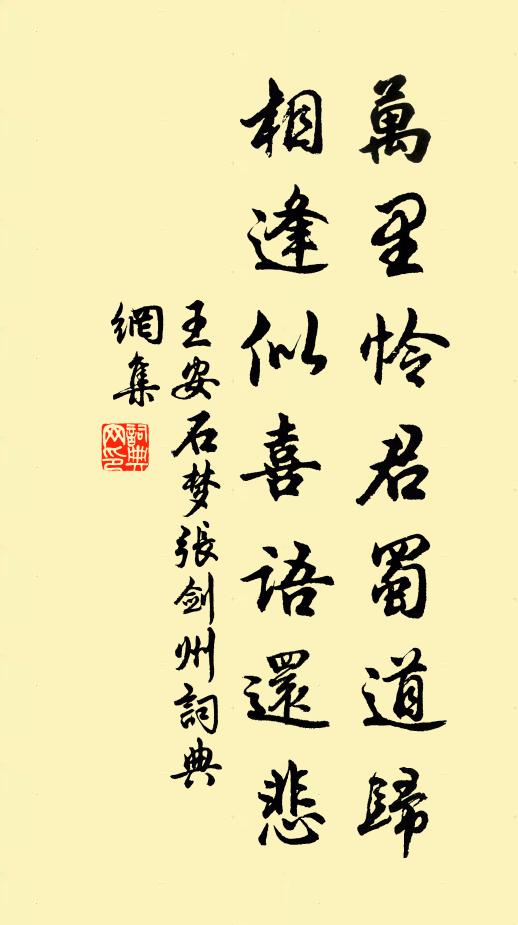 萬里怜君蜀道歸
相逢似喜語還悲
王安石梦張剑州詞典
網集
詞典
网印